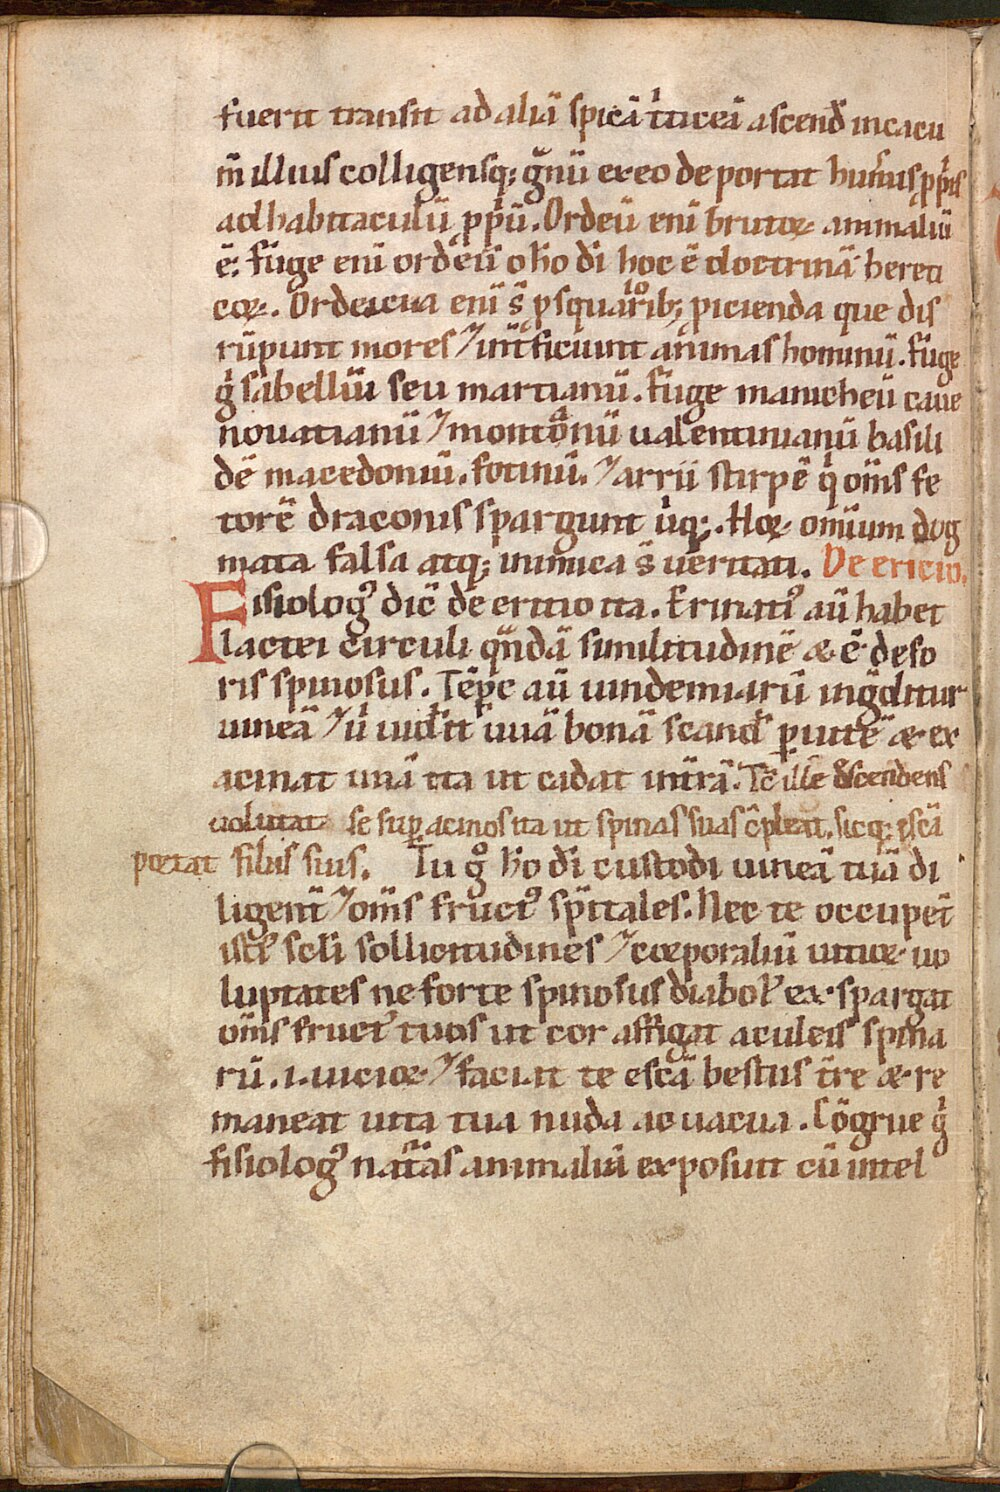 fuerit transit ad aliā spicā tͥticeā ascend̄ in cacu
m̄ illius colligensq; g̃nū ex eo deportat hum̃is ꝓpͥis
ad habitaculū ꝓpͥū. Ordeū eni brutoꝝ animaliū
ē: fuge eni ordeū o ho di hoc ē doctrinā hereti
coꝝ. Ordeicia eni s̄ ꝓ squaroͥrib; ꝓicienda que dis
rūpunt mores ⁊ int̄ficiunt animas hominū. fuge
gͥ sabelliū seu martianū. fuge manicheū caue
nouatianū ⁊ montͣonū ualentinianū basili
dē macedoniū. fotinū. ⁊ arrii stirpē qͥ om̄s fe
torē draconis spargunt uͥq;. Hoꝝ omiūm dog
mata falsa atq; inimica s̄ ueritati. De ericio.
Fisiologꝰ dic̄ de ericio ita. Erinatiꝰ aū habet
lactei circuli qͣndā similitudinē & ē deso
ris spinosus. Tēpͦe aū uindemiarū ing̃ditur
uineā ⁊ uͥ uid̄it uuā bonā scand̄ ꝑ uitē & ex
acinat unā ita ut cadat int̄rā. Tc̄ ille d̄scendens
uolutat se suꝑ acinos ita ut spinas suas c̄pleat. sicq; escā
portat filiis suis. Tu gͦ ho di custodi uineā tuā di
ligent̄ ⁊ om̄s fructꝰ sp̄itales. Nec te occupet̄
istiꝰ scl̄i sollicitudines ⁊ corporaliū uitioꝝ uo
luptates ne forte spinosus diabolꝰ ex spargat
om̄s fructꝰ tuos ut cor affigat aculeis spina
rū .i. uicioꝝ ⁊ faciat te escā bestiis t̄re & re
maneat uita tua nuda ac uacua. Cōgrue gͥ
fisiologꝰ natͣas animaliū exposuit cū intel